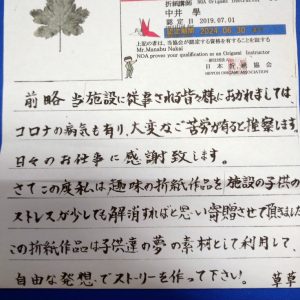 折紙講師 NOA Origami Instructor
中井 學
認定日 2019.07.01
認定期間 2024.06.30
上記の者は、当協会が認定する資格を有することを証する
Mr.Manabu Nakai
NOA proves your qualification as an Origami Instructor
日本折紙協会
NIPPON ORIGAMI ASSOCIATION
前略 当施設に従事される皆々様におかれましては、
コロナの病気も有り、大変なご苦労が有ると推察します。
日々のお仕事に感謝致します。
さてこの度私は趣味の折紙作品を施設の子供の
ストレスが少しでも解消すればと思い寄贈させて頂きました
この折紙作品は子供達の夢の素材として利用して、
自由な発想でストーリーを作って下さい。 草草